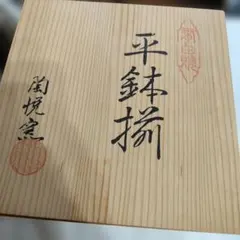 平鉢揃
陶悦窯